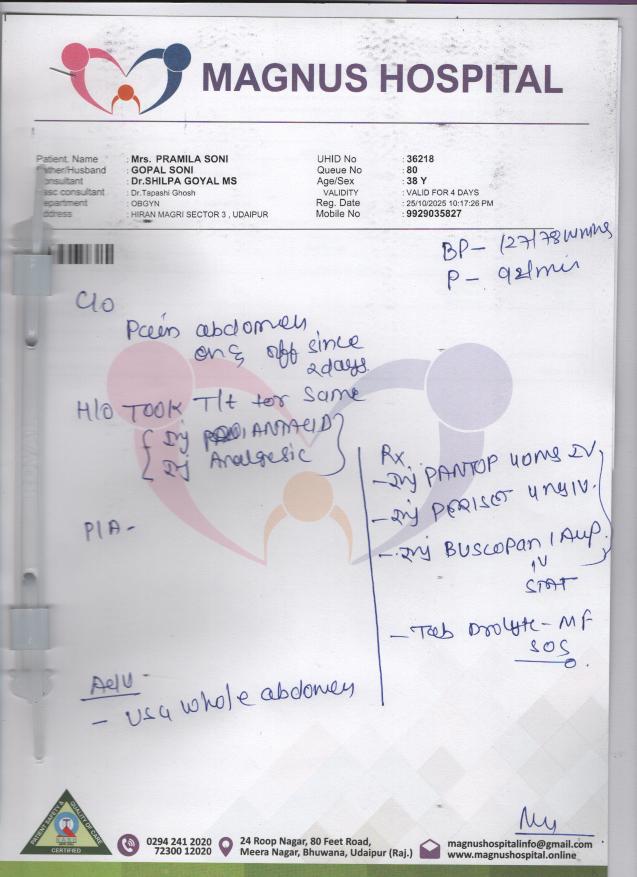 MAGNUS HOSPITAL
Patient. Name : Mrs. PRAMILA SONI
ather/Husband : GOPAL SONI
onsultant : Dr.SHILPA GOYAL MS
asc consultant : Dr.Tapashi Ghosh
epartment : OBGYN
ddress : HIRAN MAGRI SECTOR 3 , UDAIPUR
UHID No : 36218
Queue No : 80
Age/Sex : 38 Y
VALIDITY : VALID FOR 4 DAYS
Reg. Date : 25/10/2025 10:17:26 PM
Mobile No : 9929035827
BP- 127/78 mmHg
P- 92/min
C/o
Pain abdomen
on & off since
2days
H/o TOOK T/t for same
Inj ANTACID
Inj Analgesic
P/A -
Adv -
- USG whole abdomen
Rx
- Inj PANTOP 40mg IV
- Inj PERISET 4mg IV.
- Inj BUSCOPAN 1 Amp
IV
STAT
- Tab Drolyte - MF
SOS
PATIENT SAFETY & QUALITY OF CARE
CERTIFIED
0294 241 2020
72300 12020
24 Roop Nagar, 80 Feet Road,
Meera Nagar, Bhuwana, Udaipur (Raj.)
magnushospitalinfo@gmail.com
www.magnushospital.online